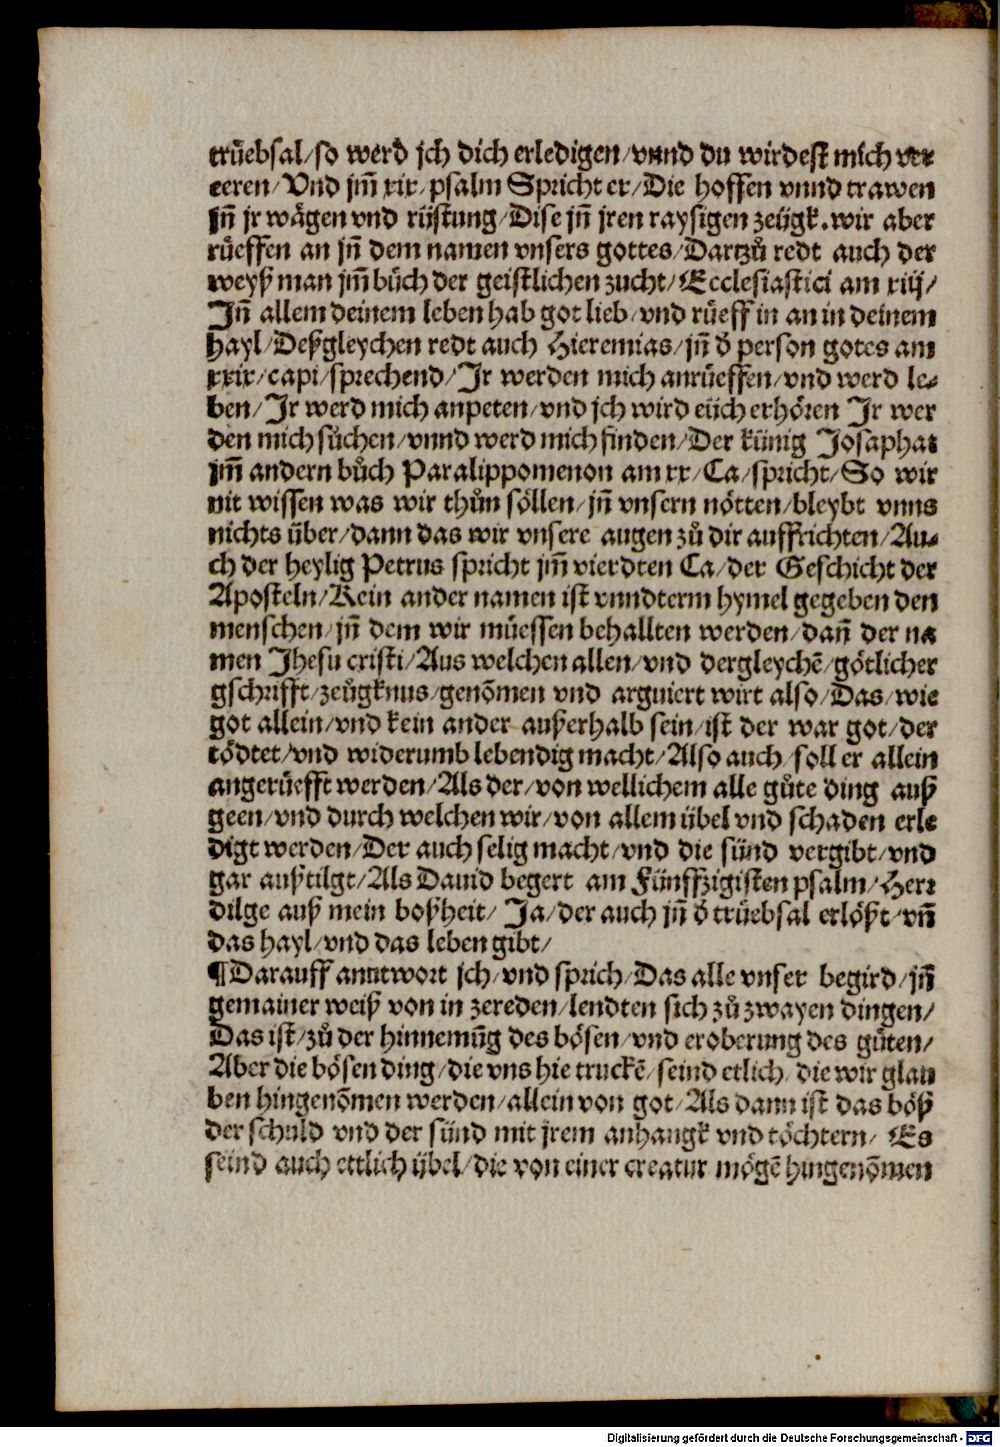 trüebsal/so werd jch dich erledigen/vnnd du wirdest mich ver
eeren/Vnd jm̃ xix/psalm Spricht er/Die hoffen vnnd trawen
jñ jr wägen vnd rüstung/Dise jñ jren raysigen zeügk.wir aber
rüeffen an jñ dem namen vnsers gottes/Dartzů redt auch der
weyß man jm̃ bůch der geistlichen zucht/Ecclesiastici am xiij/
Jñ allem deinem leben hab got lieb/vnd rüeff in an in deinem
hayl/Deßgleychen redt auch Hieremias/jñ d̕ person gotes am
xxix/capi/sprechend/Jr werden mich anrüeffen/vnd werd le⸗
ben/Jr werd mich anpeten/vnd jch wird eüch erhören Jr wer
den mich sůchen/vnnd werd mich finden/Der künig Josaphat
jm̃ andern bůch Paralippomenon am xx/Ca/spricht/So wir
nit wissen was wir thůn söllen/jñ vnsern nötten/bleybt vnns
nichts über/dann das wir vnsere augen zů dir auffrichten/Au⸗
ch der heylig Petrus spricht jm̃ vierdten Ca/der Geschicht der
Aposteln/Kein ander namen ist vnndterm hymel gegeben den
menschen/jñ dem wir müessen behallten werden/dañ der na
men Jhesu cristi/Aus welchen allen/vnd dergleychē/götlicher
gschrifft/zeügknus/genōmen vnd arguiert wirt also/Das/wie
got allein/vnd kein ander außerhalb sein/ist der war got/der
tödtet/vnd widerumb lebendig macht/Also auch/soll er allein
angerüefft werden/Als der/von wellichem alle gůte ding auß
geen/vnd durch welchen wir/von allem übel vnd schaden erle
digt werden/Der auch selig macht/vnd die sünd vergibt/vnd
gar außtilgt/Als Dauid begert am Fünffzigisten psalm/Herr
dilge auß mein boßheit/Ja/der auch jñ d̕ trüebsal erlößt/vñ
das hayl/vnd das leben gibt/
¶Darauff anntwort jch/vnd sprich/Das alle vnser begird/jñ
gemainer weiß von in zereden/lendten sich zů zwayen dingen/
Das ist/zů der hinnemūg des bösen/vnd eroberung des gůten/
Aber die bösen ding/die vns hie truckē/seind etlich/die wir glau
ben hingenōmen werden/allein von got/Als dann ist das böß
der schuld vnd der sünd mit jrem anhangk vnd töchtern/Es
seind auch ettlich übel/die von einer creatur mögē hingenōmen
Digitalisierung gefördert durch die Deutsche Forschungsgemeinschaft - DFG